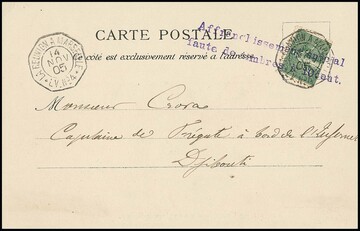 CARTE POSTALE
Affranchissement
faute de timbres
côté est exclusivement réservé à l'adresse
LA REUNION A MARSEILLE
14
NOV
05
L.V. N°4
Monsieur Crova
Capitaine de Frégate à bord de l'Infernet
Djibouti